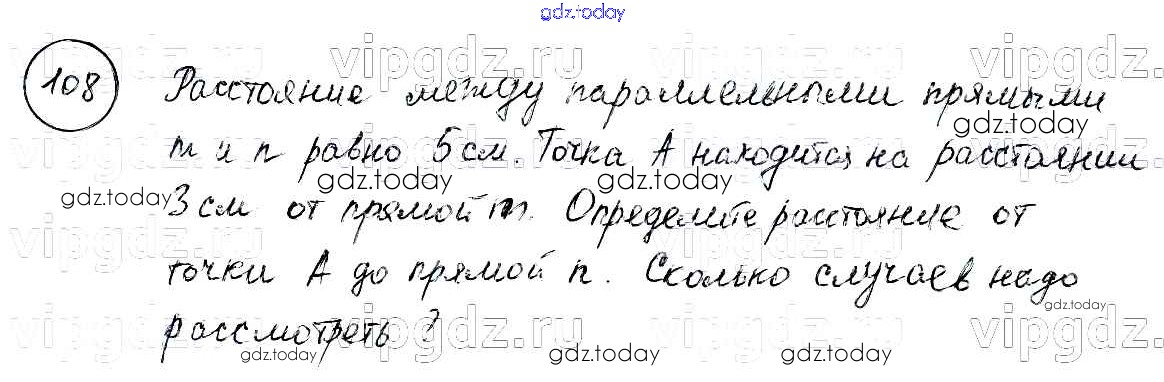 gdz.today
108 Расстояние между параллельными прямыми
m и n равно 5 см. Точка A находится на расстоянии
3 см от прямой m. Определите расстояние от
точки A до прямой n. Сколько случаев надо
рассмотреть?
vipgdz.ru vipgdz.ru vipgdz.ru vipgdz.ru
gdz.today
gdz.today gdz.today gdz.today
gdz.today
vipgdz.ru vipgdz.ru vipgdz.ru vipgdz.ru
gdz.today
gdz.today gdz.today gdz.today